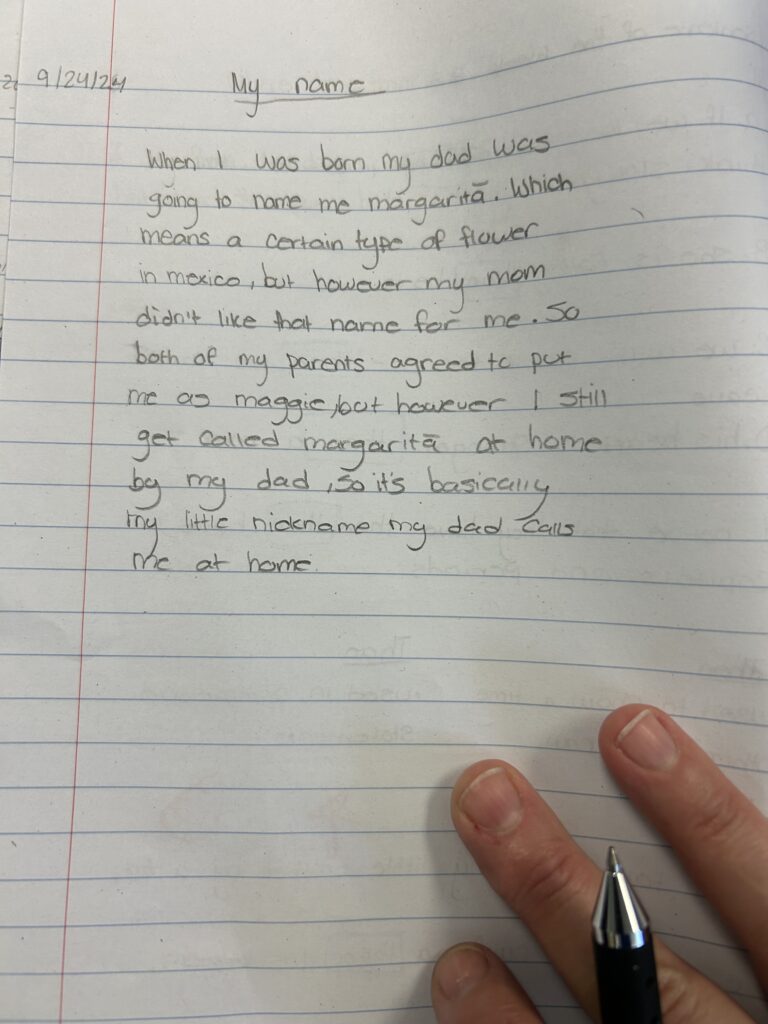 9/24/24 My name
When I was born my dad was
going to name me margaritā. Which
means a certain type of flower
in mexico, but however my mom
didn't like that name for me. So
both of my parents agreed to put
me as maggie, but however I still
get called margaritā at home
by my dad, so it's basically
my little nickname my dad calls
me at home.